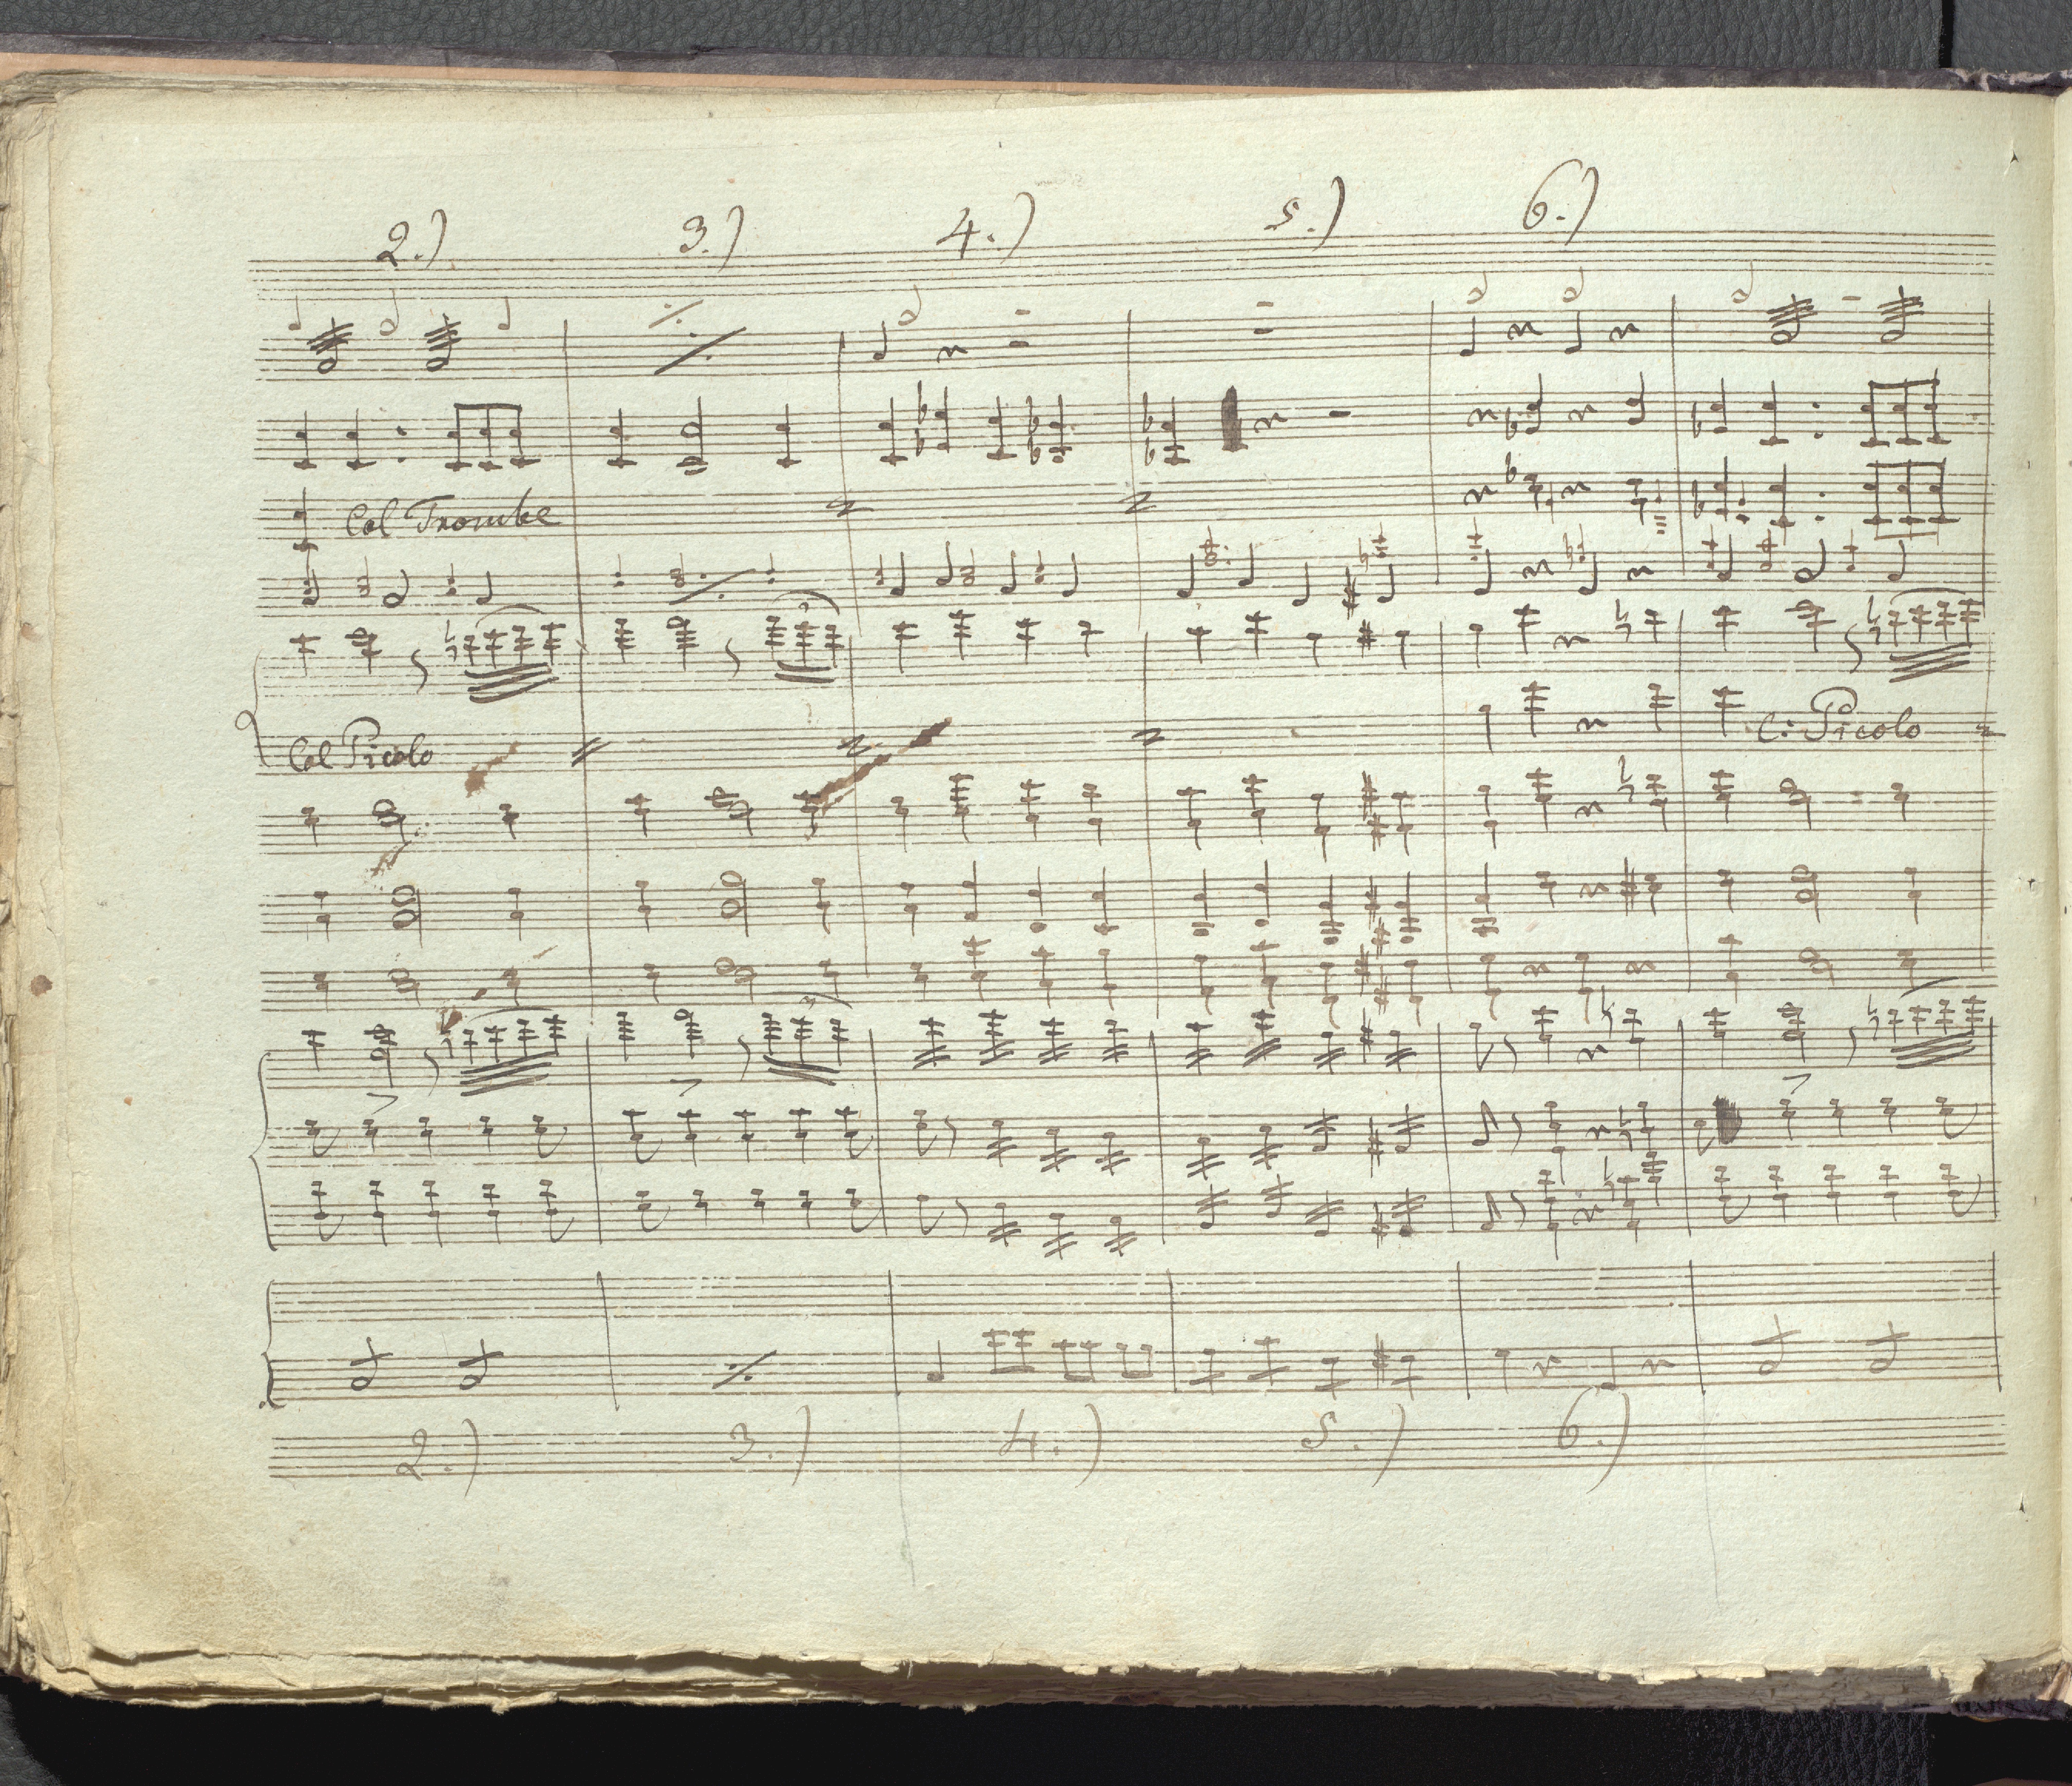 2.) 3.) 4.) 5.) 6.)
Col Trombe
3
Col Picolo C: Picolo
3
2.) 3.) 4.) 5.) 6.)